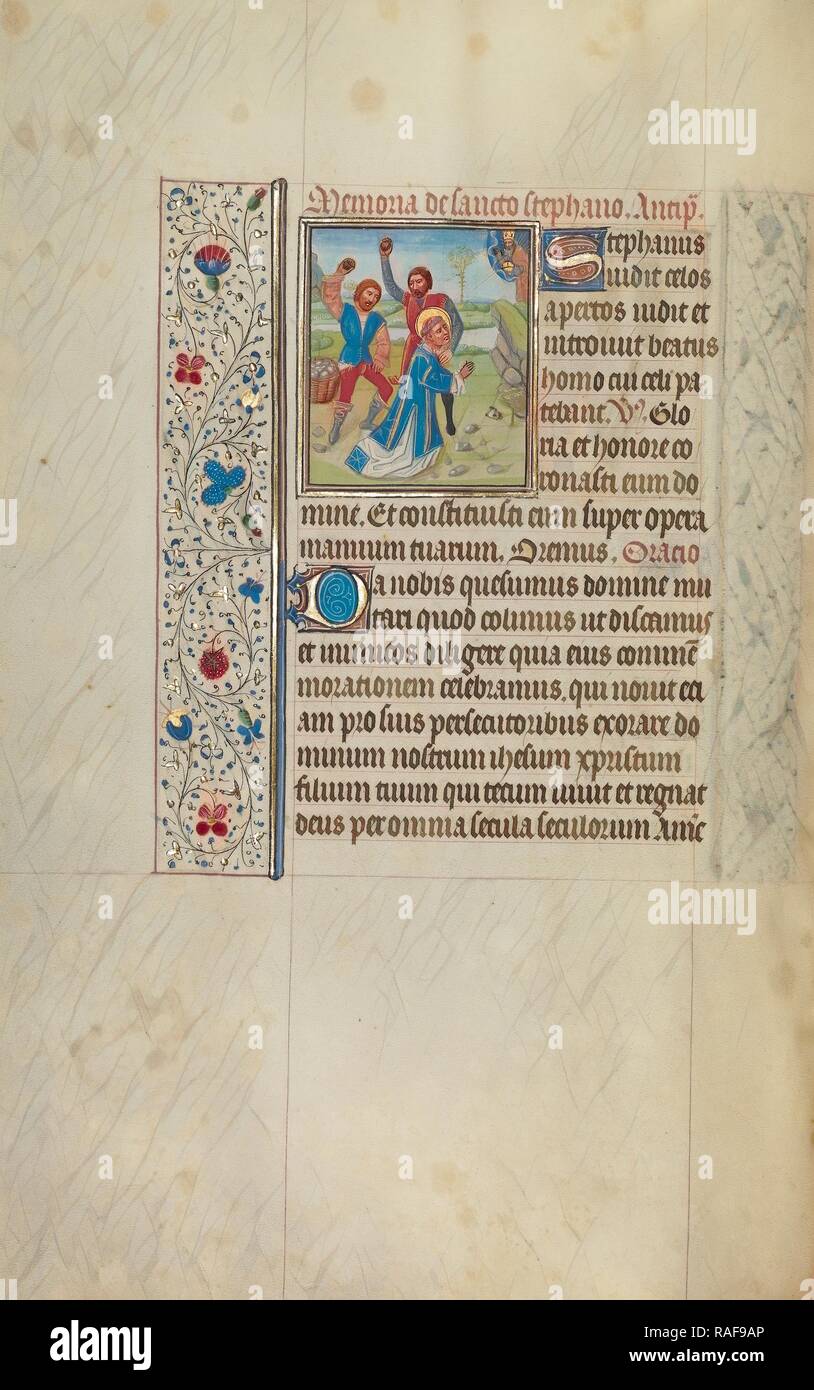 Memoria de sancto stephano. Antip̃.
Stephanus
uidit celos
apertos uidit et
introiuit beatus
homo cui celi pa
tebant. V̾. Glo
ria et honore co
ronasti eum do
mine. Et constituisti eum super opera
manuum tuarum. Oremus. Oracio
Da nobis quesumus domine mu
itari quod colimus ut discamus
et inimicos diligere quia eius comme̅
morationem celebramus. qui nouit eci
am pro suis persecutoribus exorare do
minum nostrum ihesum xpristum
filium tuum qui tecum uiuit et regnat
deus per omnia secula seculorum Ame̅
alamy
alamy
alamy
Image ID: RAF9AP
www.alamy.com